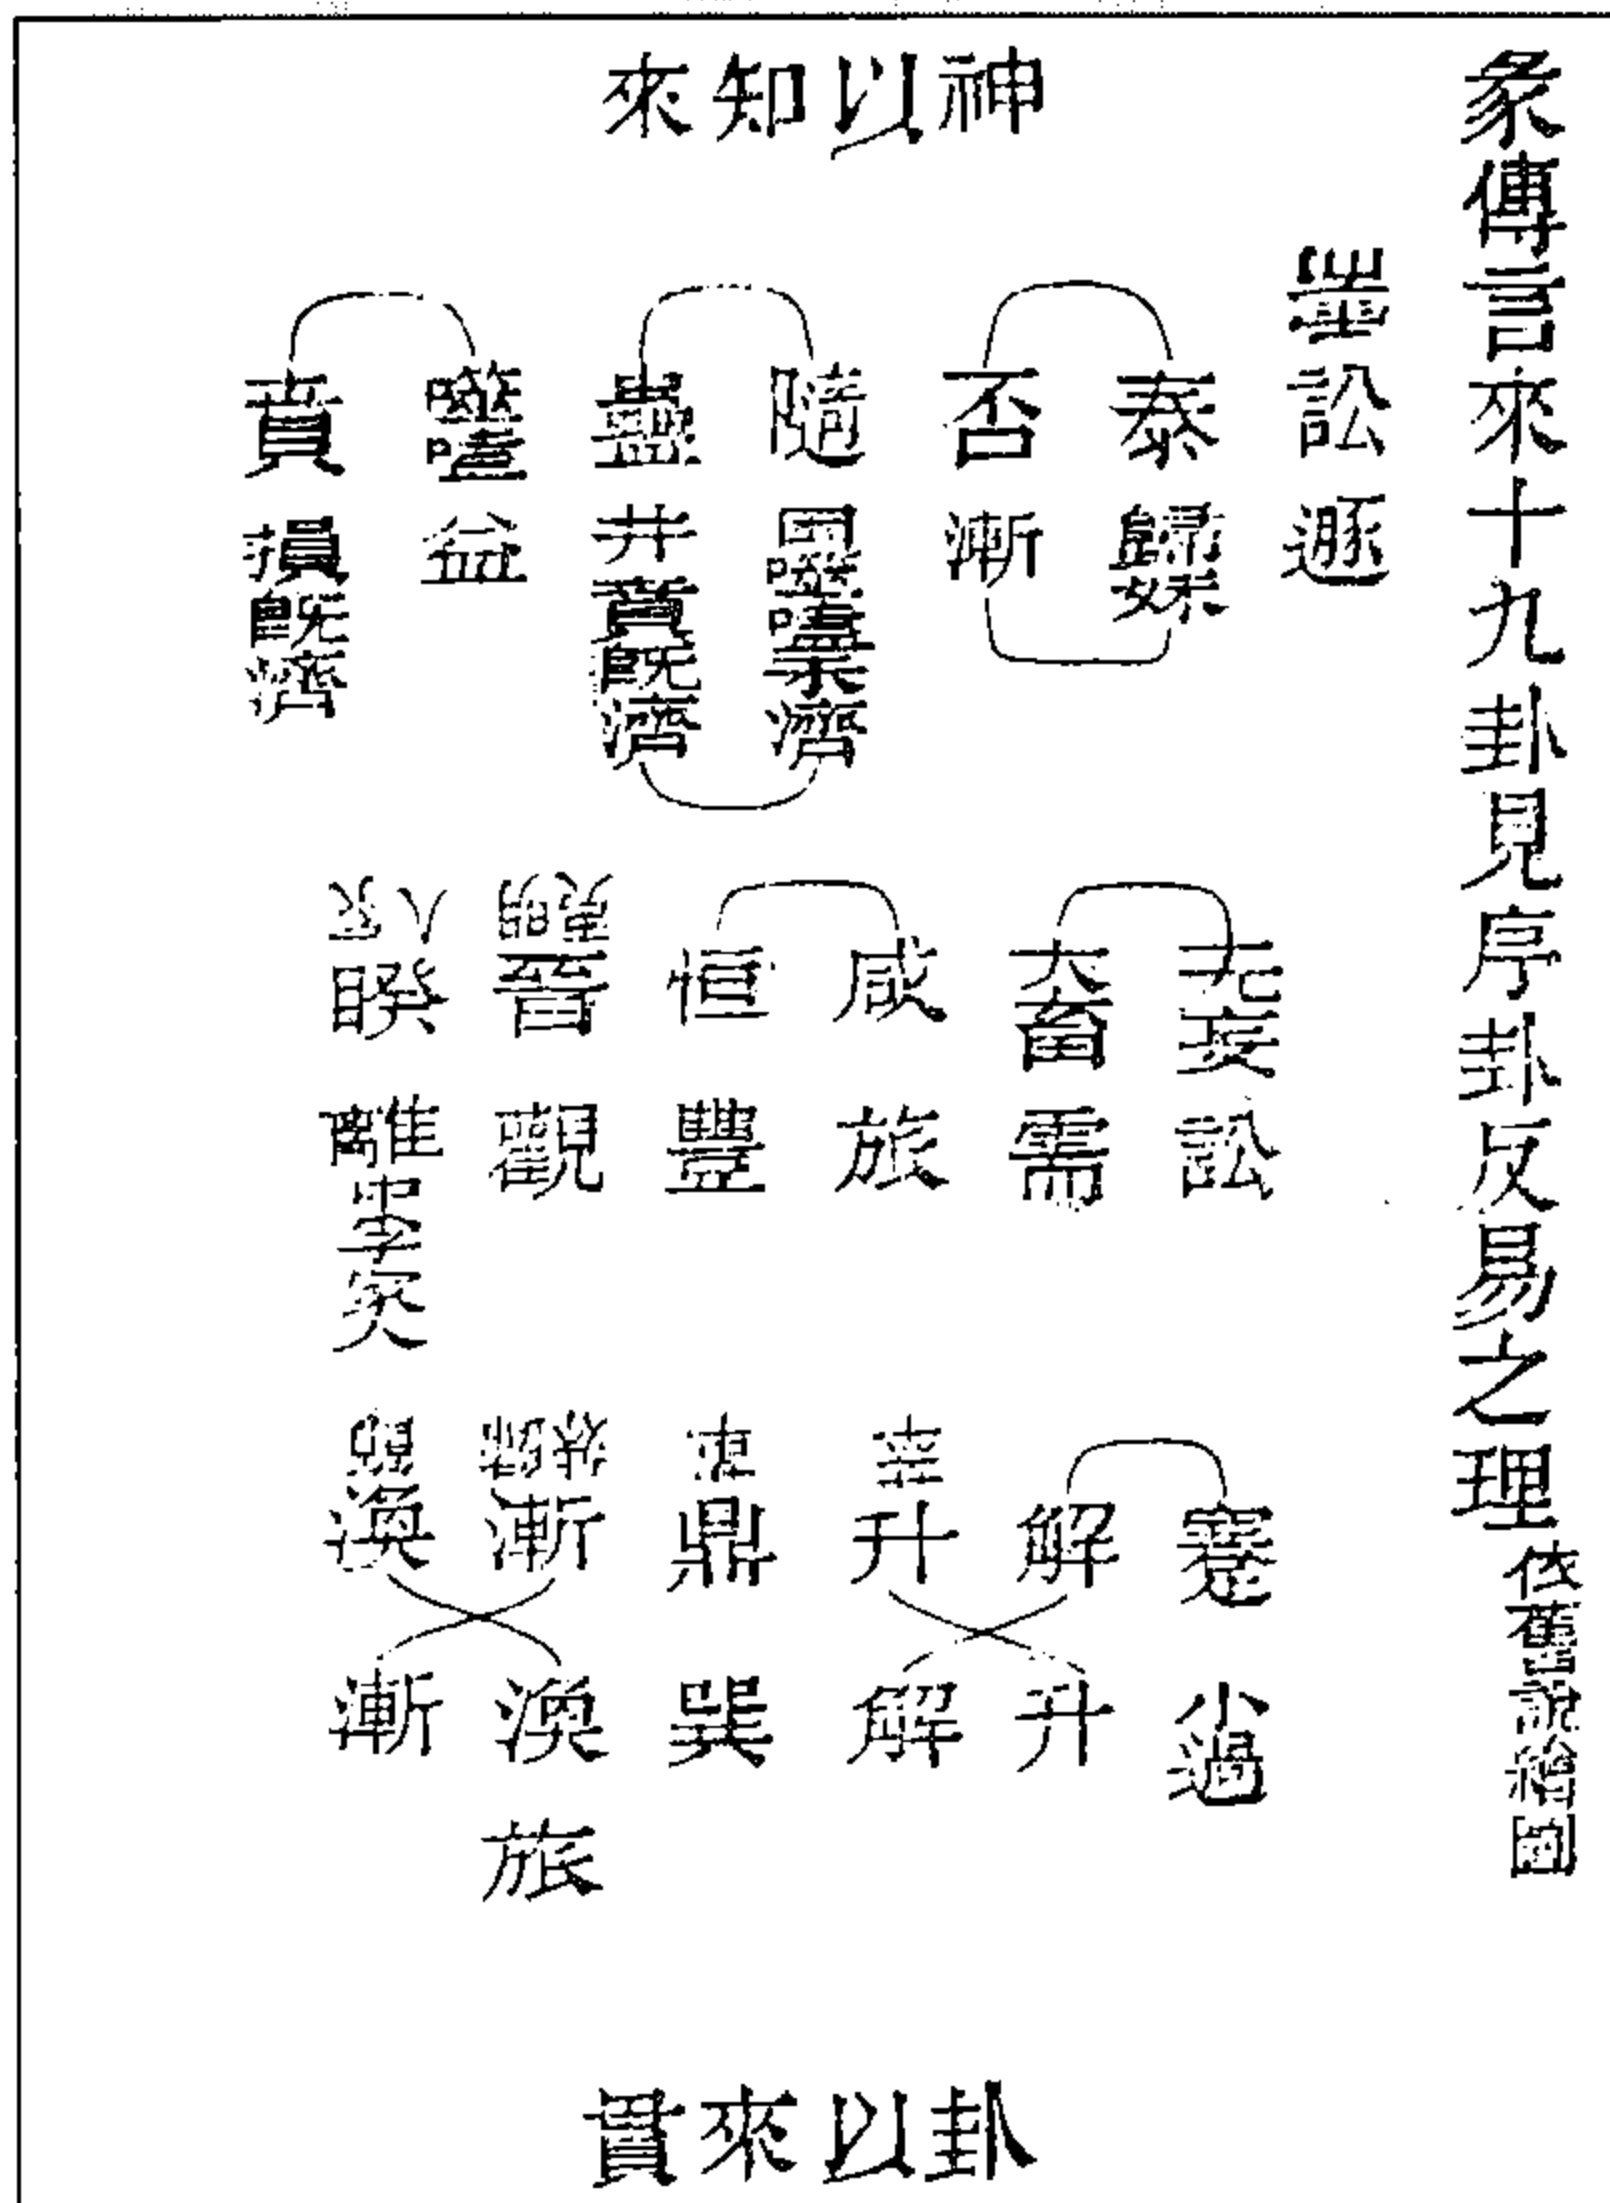 彖傳言來十九卦見序卦反易之理
依舊說繪圖
神以知來
需訟 遯
泰 歸妹
否 漸
隨 困噬嗑未濟
蠱 井賁既濟
噬嗑 益
賁 損既濟
无妄 訟
大畜 需
咸 旅
恒 豐
明夷晉 觀
家人睽 離中孚家人
蹇 小過
解 升
萃升 解
革鼎 巽
歸妹漸 渙 旅
節渙 漸
卦以來貫